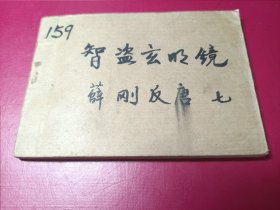 159
智盗玄明镜
薛刚反唐 七